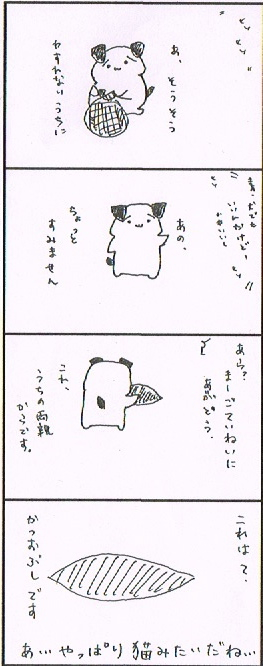 あ、そうそう
わすれないうちに
あの、
ちょっと
すみません
あら?
まーごていねいに
あがどう。
これ、
うちの両親
からです。
これはて、
かつおぶしです
あぃやっぱり猫みたいだねぃ